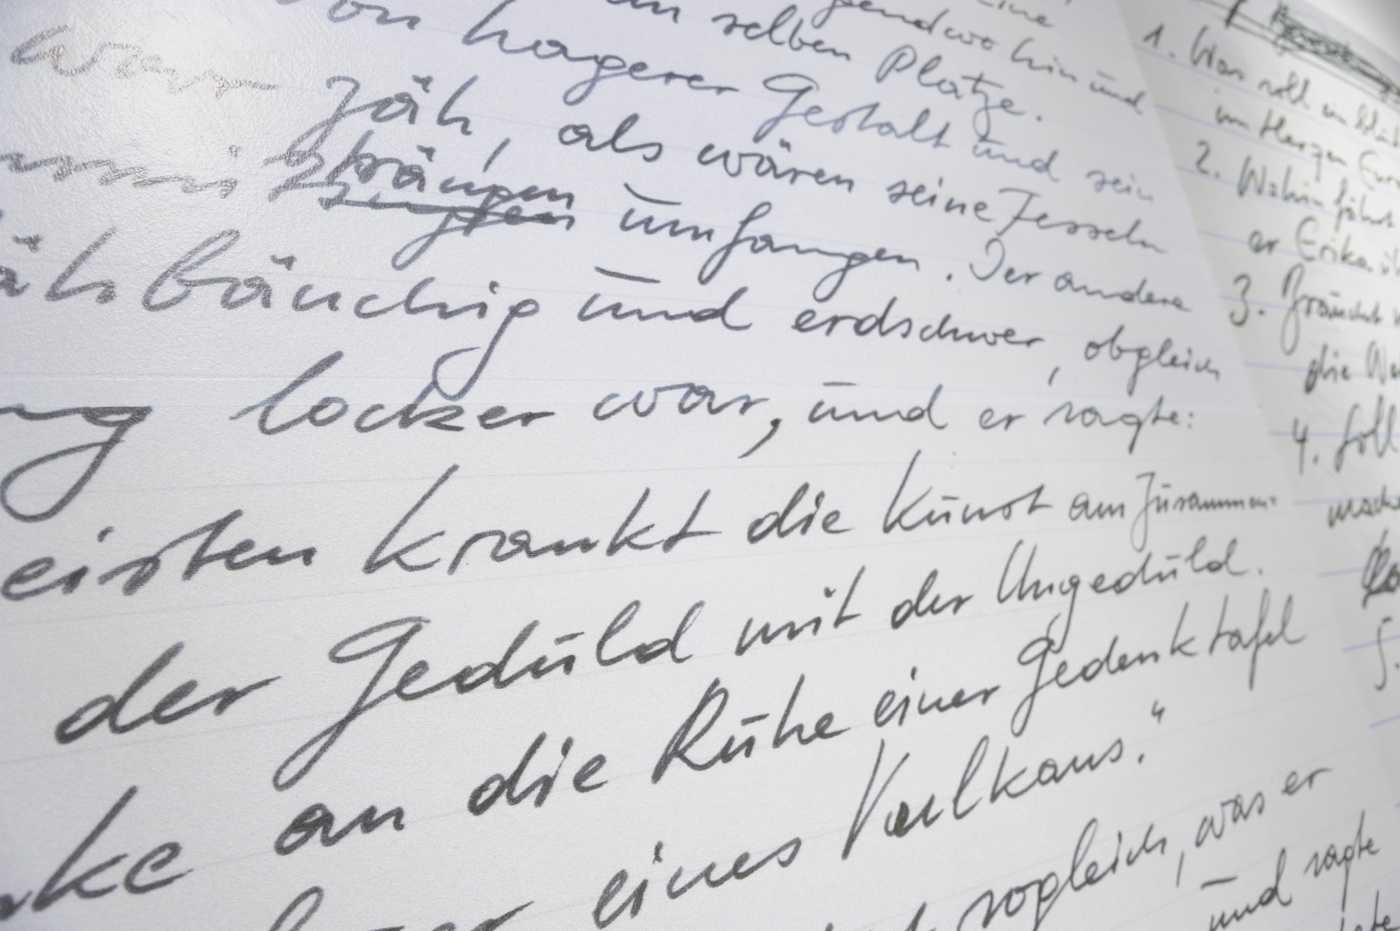 eine
irgendwo hin und
selben Platze.
von hagerer Gestalt und sein
war zäh, als wären seine Fesseln
Strängen umfangen. Der andere
bäuchig und erdschwer, obgleich
locker war, und er sagte:
eisten krankt die Kunst am Zusammen-
der Geduld mit der Ungeduld.
ke an die Ruhe einer Gedenktafel
eines Vulkans."
sogleich, was er
und sagte
1. Was soll ein
im Herzen Euro
2. Wohin führt
er Erika
3. Braucht
die We
4. Soll
mach
5.